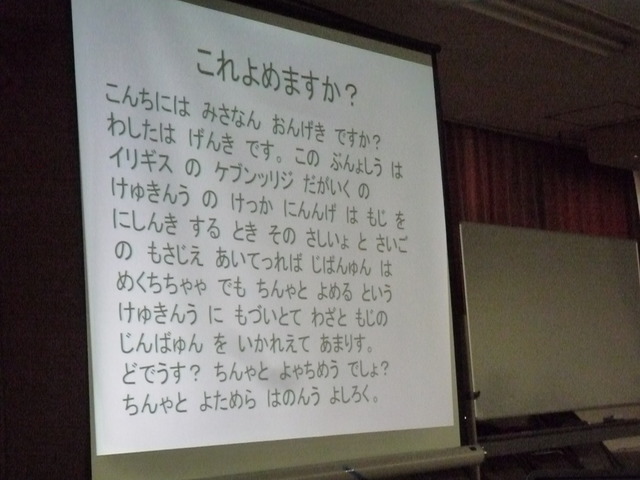 これよめますか？
こんちには みさなん おんげき ですか？
わしたは げんき です。この ぶんょしう は
イリギス の ケブンッリジ だがいく の
けゅきんう の けっか にんんげ は もじ を
にしんき する とき その さしいょ と さいご
の もさじえ あいてっれば じばんゅん は
めくちちゃゃ でも ちんゃと よめる という
けゅきんう に もづいとて わざと もじの
じんぱゅん を いかれえて あまりす。
どでうす？ ちんゃと よゃちめう でしょ？
ちんゃと よためら はのんう よしろく。